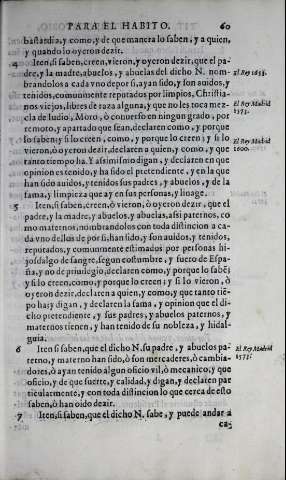 PARA EL HABITO. 60
bastardia, y como, y de que manera lo saben, y a quien,
y quando lo oyeron dezir.
4 Iten, si saben, creen, vieron, y oyeron dezir, que el pa-
dre, y la madre, abuelos, y abuelas del dicho N. nom-
brandolos a cada vno de por si, ayan sido, y son auidos, y
tenidos, comunmente reputados por limpios, Christia-
nos viejos, libres de raza alguna, y que no les toca mez-
cla de Iudio, Moro, ò conuerso en ningun grado, por
remoto, y apartado que sean, declaren como, y porque
lo saben; y si lo creen, como, y porque lo creen; y si lo
vieron, ò oyeron dezir, declaren a quien, y como, y que
tanto tiempo ha. Y assimismo digan, y declaren en que
opinion es tenido, y ha sido el pretendiente, y en la que
han sido auidos, y tenidos sus padres, y abuelos, y de la
fama, y limpieza que ay en sus personas, y linage.
El Rey 1653.
El Rey Madrid
El Rey Madrid
1600.
5 Iten, si saben, creen, ò vieron, ò oyeron dezir, que el
padre, y la madre, abuelos, y abuelas, assi paternos, co
mo maternos, nombrandolos con toda distincion a ca-
da vno dellos de por si, han sido, y son auidos, y tenidos,
reputados, y comunmente estimados por personas hi-
josdalgo de sangre, segun costumbre, y fuero de Espa-
ña, y no de priuilegio, declaren como, y porque lo sabē;
y si lo creen, como, y porque lo creen; y si lo vieron, ò
oyeron dezir, declaren a quien, y como, y que tanto tiē-
po ha; y digan, y declaren la fama, y opinion que el di-
cho pretendiente, y sus padres, y abuelos paternos, y
maternos tienen, y han tenido de su nobleza, y hidal-
guia.
6 Iten si saben, que el dicho N. su padre, y abuelos pa-
terno, y materno han sido, ò son mercaderes, ò cambia-
dores, ò ayan tenido algun oficio vil, ò mecanico, y que
oficio, y de que suerte, y calidad, y digan, y declaren par
ticularmente, y con toda distincion lo que cerca de esto
saben, ò han oido dezir.
El Rey Madrid
7 Iten, si saben, que el dicho N. sabe, y puede andar a
ca-